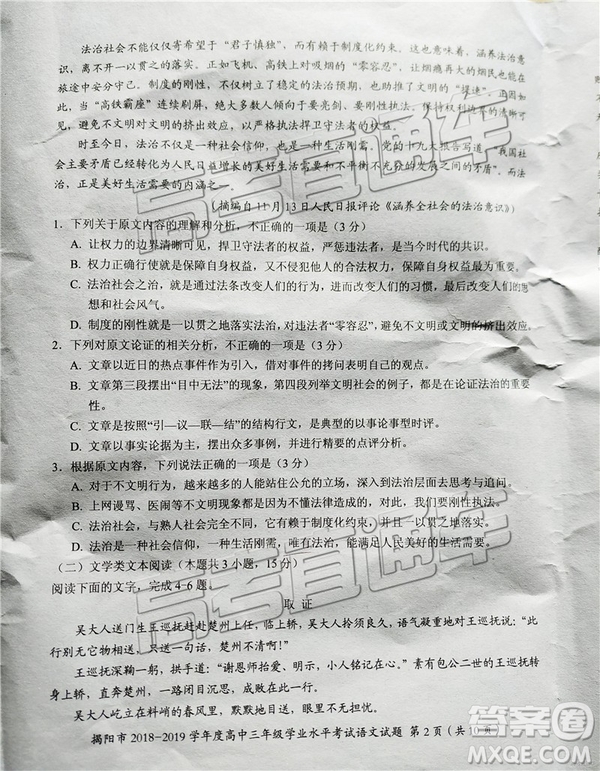 法治社会不能仅仅寄希望于“君子慎独”，而有赖于制度化约束。在今天，涵养法治意
识，离不开一以贯之落实法治。正如飞机、高铁上吸烟的“零容忍”，让烟瘾再大的烟民也能在
旅途中安分守己。制度的刚性，不仅树立了稳定的法治预期，也助推了文明的“提速”。因此，
当“高铁霸座”连续刷屏，绝大多数人倾向于要亮剑、要执行。保持权利边界的清晰可
见，避免不文明的挤出效应，以严格执法捍卫守法者的权益。
时至今日，法治不仅是一种社会信仰，也是一种生活方式。党的十九大报告写道，“我国社
会主要矛盾已经转化为人民日益增长的美好生活需要和不平衡不充分的发展之间的矛盾”，而
法治，正是美好生活需要的内涵之一。
（摘编自11月13日人民日报评论《涵养全社会的法治意识》）
1．下列关于原文内容的理解和分析，不正确的一项是（3分）
A．让权力的边界清晰可见，捍卫守法者的权益，严惩违法者，是当今时代的共识。
B．权力被关进笼子，实质就是保障自身权益，又从制度上限制了保障自身权益。
C．法治社会，就是通过法条改变人们的行为，进而改变人们的习惯，最后改变人们的思想
和社会风气。
D．制度的刚性就是一以贯之地落实法治，对违法者“零容忍”，避免不文明或文明的挤出效应。
2．下列对原文论证的相关分析，不正确的一项是（3分）
A．文章以近日的热点事件作为引入，借计者的拷问表明自己的观点。
B．文章第三段摆出“目中无法”的现象，第四段列举文明社会的条件，都是在论证法治的
重要性。
C．文章是按照“引—议—联—结”的结构行文，是典型的以事论事型时评。
D．文章以事实论据为主，摆出多则社会案例，并进行精要的点评分析。
3．根据原文内容，下列说法正确的一项是（3分）
A．对于不文明行为，越来越多的人能站位公允的立场，深入到法治层面去思考与追问。
B．上网谩骂、医闹等不文明现象都是因为不懂法律造成的，对此，我们要刚性执法。
C．法治社会，与熟人社会完全不同，它有赖于制度化约束，有赖于一以贯之地落实。
D．法治是一种社会信仰，一种生活方式，能满足人民美好生活的所有需要。
（二）文学类文本阅读（本题共3小题，15分）
阅读下面的文字，完成4-6题。
取证
吴大人送门生王巡抚赴赴楚州上任，临上轿，吴大人拎须良久，语气凝重地对王巡抚说：“此
行别无它物相送，只送一句话，楚州无小事！”
王巡抚深鞠一躬，拱手道：“谢恩师抬爱，明示，小人铭记在心。”素有包公二世的王巡抚转
身上轿，直奔楚州，一路闲话少叙，不表。
吴大人屹立在轿子旁，眼前闪现出王巡抚一幕幕办案的情景。
揭阳市2018-2019学年度高中三年级学业水平考试语文试题 第2页（共10页
高考直通车
高考直通车
答案圈
MXQE.COM